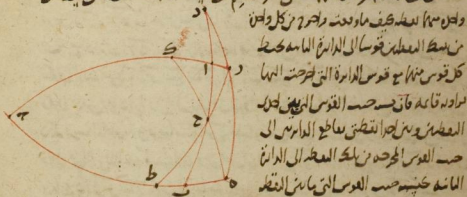 واحد منهما نقطه كيف ما وقعت واخرج من كل واحدة
من تلك النقطتين قوسا الى الدائرة الثانيه تحيط
كل قوس منهما مع قوس الدائرة التي اخرجت اليها
بزاوية قائمة فان نسبه جيب القوس التي بين احدى
النقطتين وبين احد نقطتي تقاطع الدائرتين الى
جيب القوس المخرجه من تلك النقطه الى الدائرة
الثانيه كنسبه جيب القوس التي ما بين النقطه
د
ا
ر
ح
ط
ب
ه